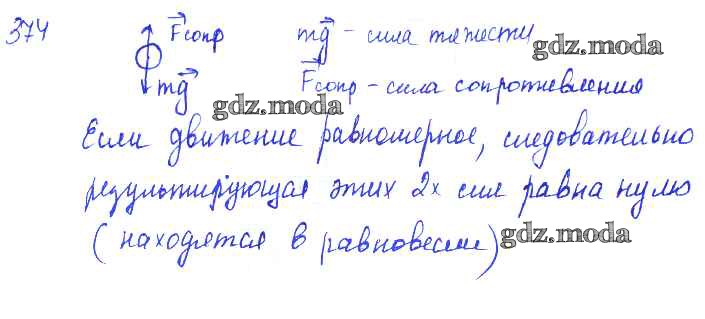 374 Fсопр mg - сила тяжести gdz.moda
mg Fсопр - сила сопротивления
gdz.moda
Если движение равномерное, следовательно
результирующая этих 2х сил равна нулю
(находятся в равновесии) gdz.moda